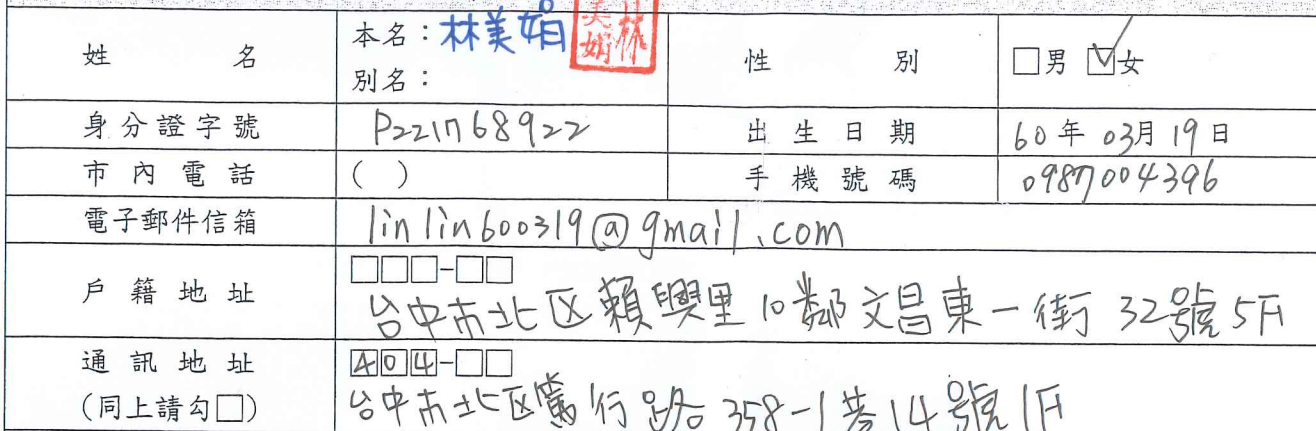 姓名 本名：林美娟 林美娟 性別 □男 ☑女
別名：
身分證字號 P221768922 出生日期 60年03月19日
市內電話 ( ) 手機號碼 0987004396
電子郵件信箱 linlin600319@gmail.com
戶籍地址 □□□-□□
台中市北区賴興里10鄰文昌東一街32號5F
通訊地址 404-□□
(同上請勾□) 台中市北区篤行路358-1巷14號1F